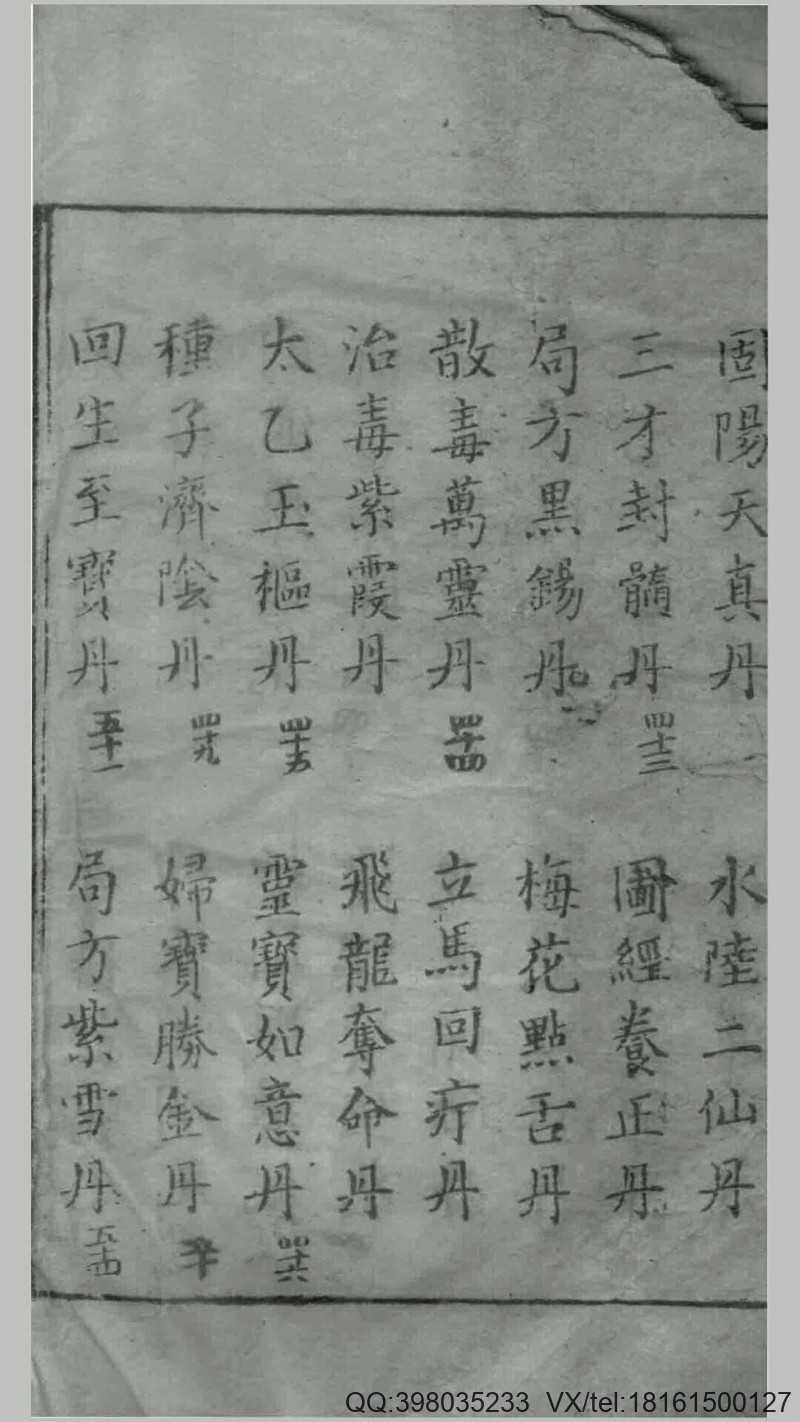 固陽天真丹
水陸二仙丹
三才封髓丹 四十三
圖經養正丹
局方黑錫丹
梅花點舌丹
散毒萬靈丹 四十四
立馬回疔丹
治毒紫霞丹
飛龍奪命丹
太乙玉樞丹 四十五
靈寶如意丹 四十六
種子濟陰丹 四十九
婦寶勝金丹 五十
回生至寶丹 五十一
局方紫雪丹 五十四
QQ:398035233 VX/tel:18161500127